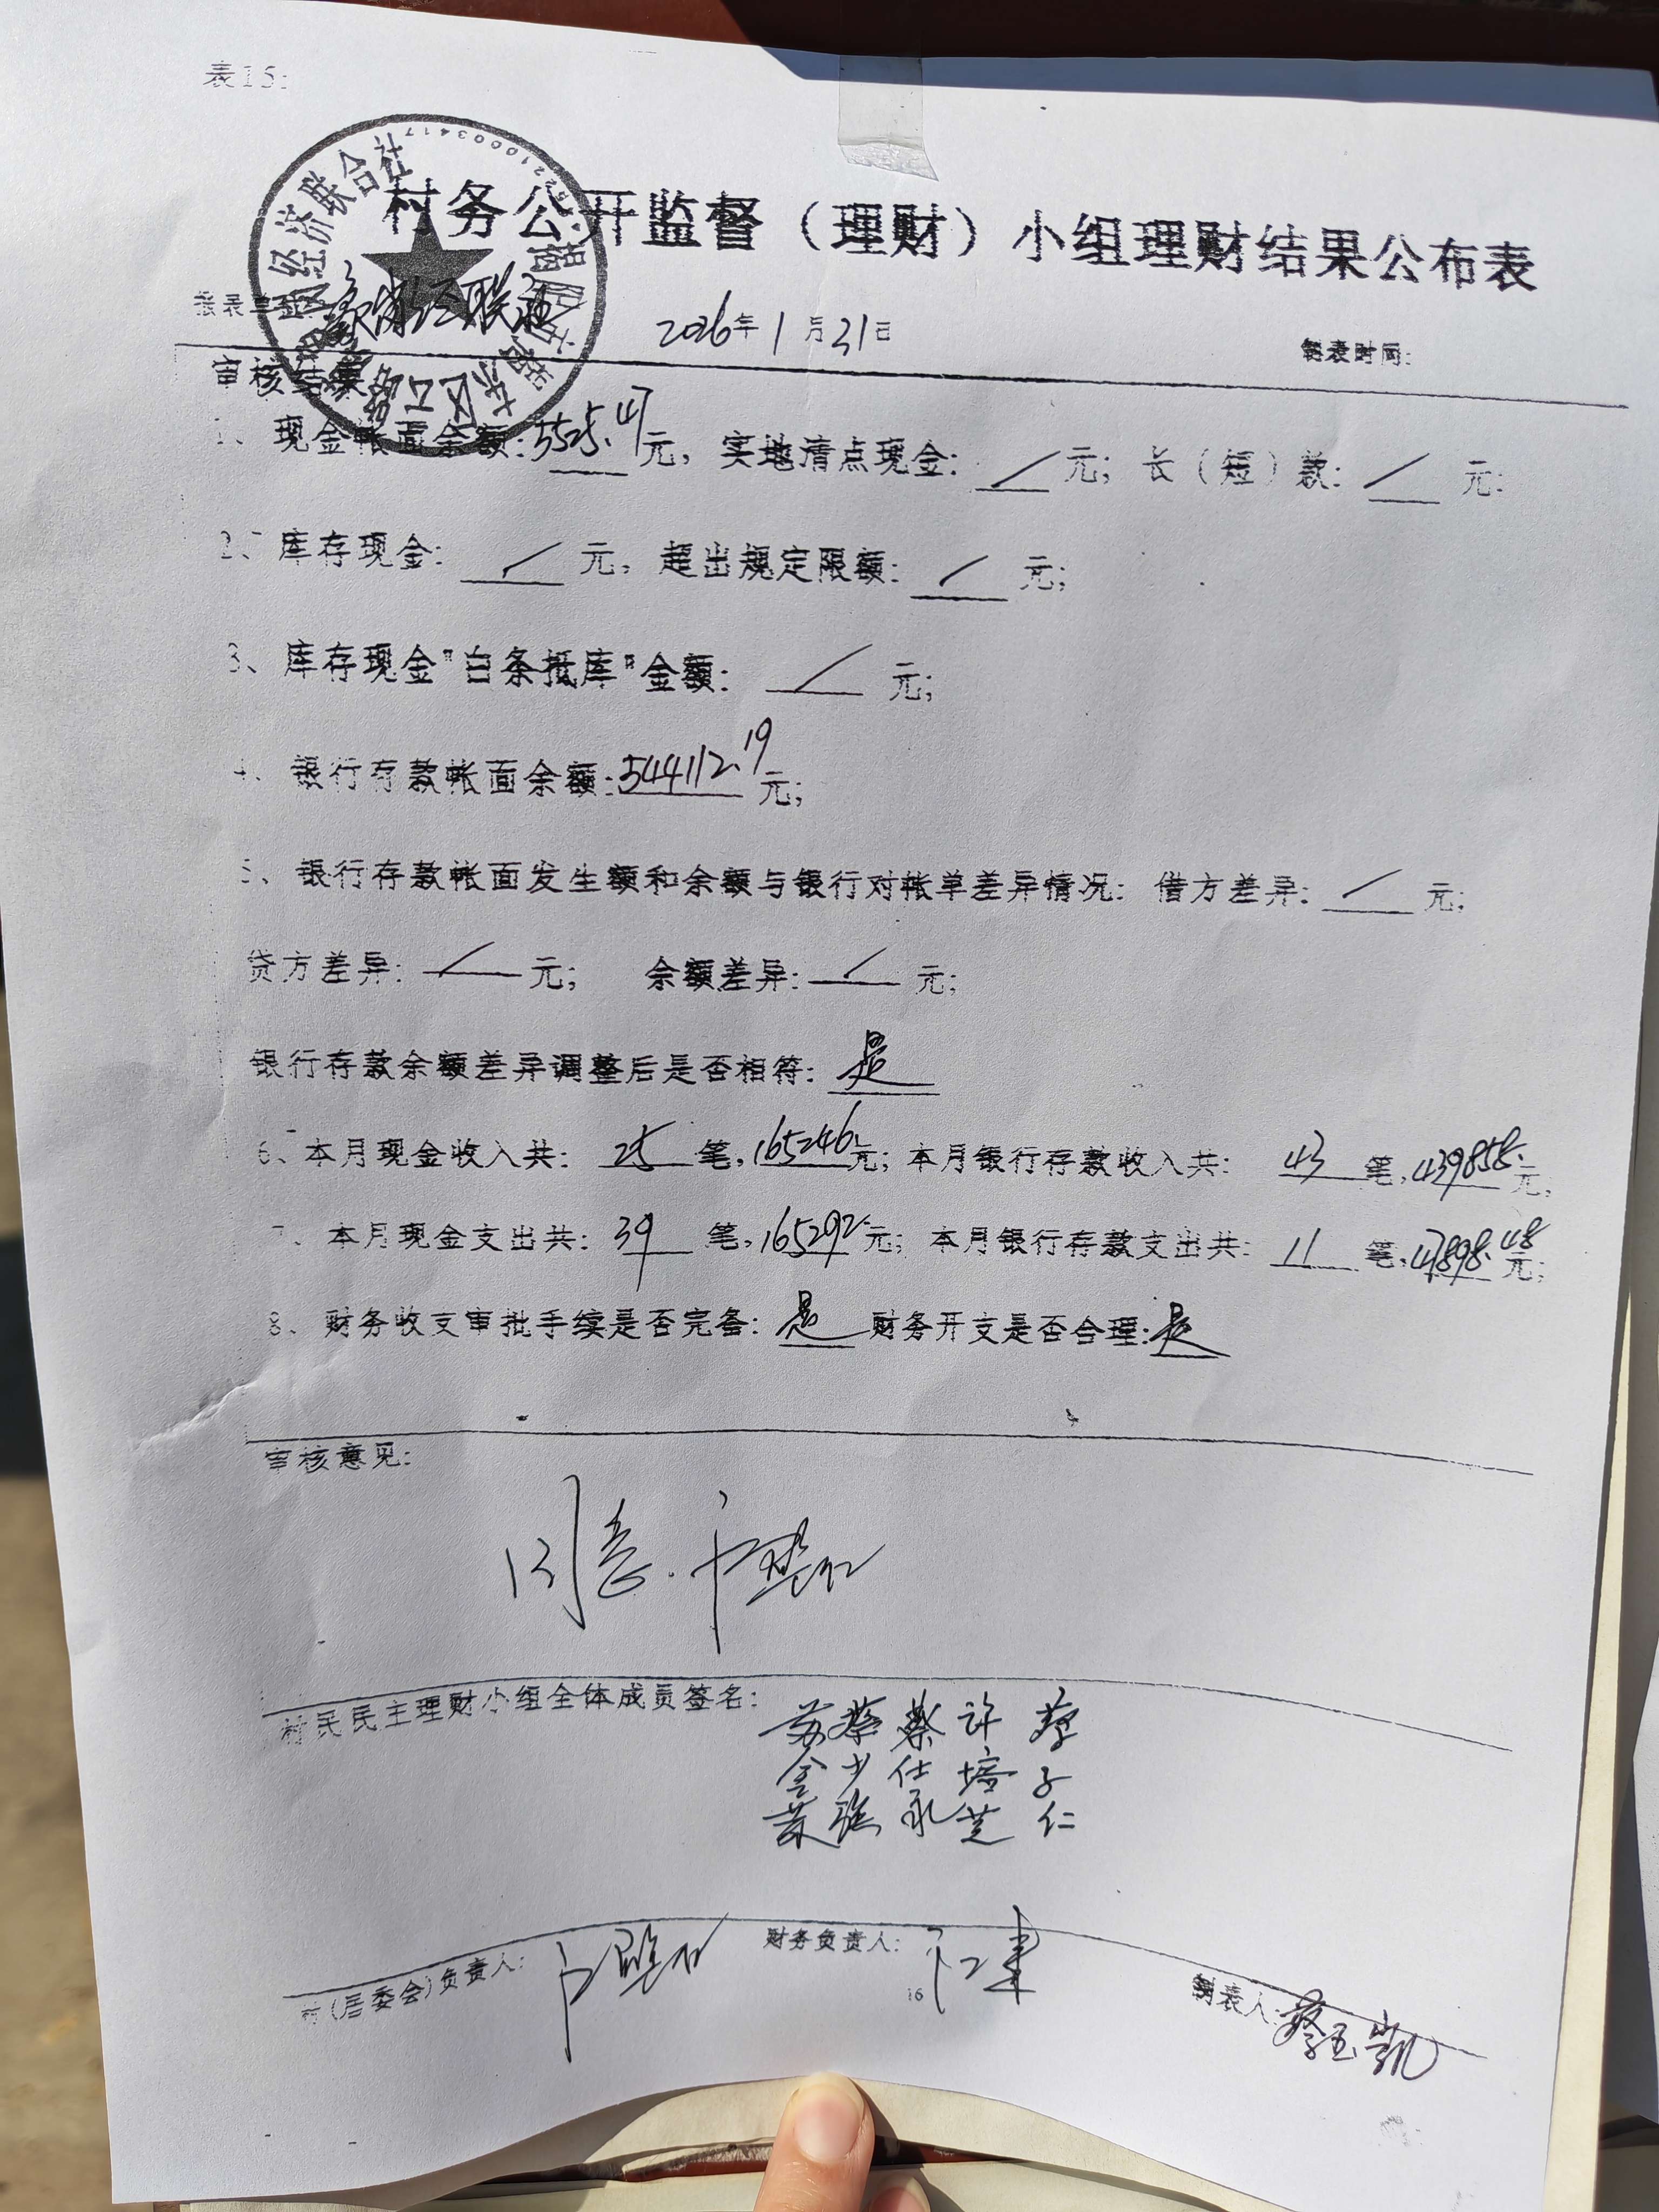 表15:
村务公开监督（理财）小组理财结果公布表
经济联合社
2026年1月31日
制表时间:
审核结果
1、现金帐面余额:5525.47元，实地清点现金:／元；长（短）款:／元:
2、库存现金:／元，超出规定限额:／元;
3、库存现金"白条抵库"金额:／元;
4、银行存款帐面余额:544112.19元;
5、银行存款帐面发生额和余额与银行对帐单差异情况: 借方差异:／元;
贷方差异:／元; 余额差异:／元;
银行存款余额差异调整后是否相符:是
6、本月现金收入共: 25笔,165246.元; 本月银行存款收入共: 43笔,439858.元;
7、本月现金支出共: 39笔,165292.元; 本月银行存款支出共: 11笔,47898.48元;
8、财务收支审批手续是否完备:是 财务开支是否合理:是
审核意见:
同意.
村民民主理财小组全体成员签名:
苏金 蔡少强 蔡仕永 许培芝 蔡子仁
村(居委会)负责人: 财务负责人: 制表人:蔡玉凯
16